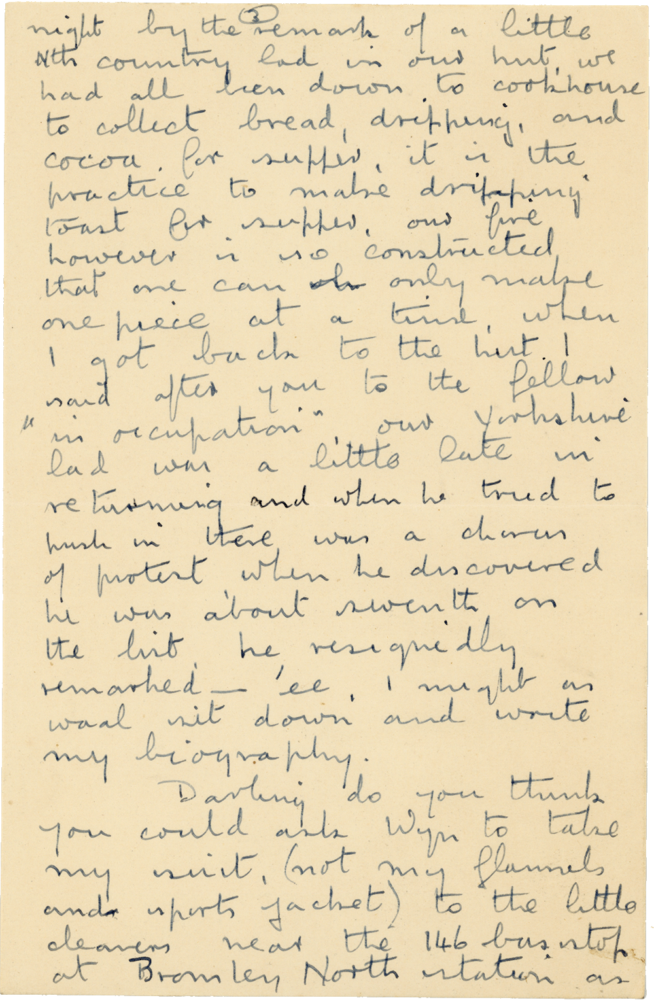 3
night by the remark of a little
Nth country lad in our hut, we
had all been down to cookhouse
to collect bread, dripping, and
cocoa for supper, it is the
practice to make dripping
toast for supper, our fire
however is so constructed
that one can only make
one piece at a time, when
I got back to the hut I
said after you to the fellow
"in occupation", our Yorkshire
lad was a little late in
returning and when he tried to
push in there was a chorus
of protest, when he discovered
he was about seventh on
the list, he resignedly
remarked — 'ee, I might as
waal sit down and write
my biography.
Darling do you think
you could ask Wyn to take
my suit, (not my flannels
and sports jacket) to the little
cleaners near the 146 bus stop
at Bromley North station as